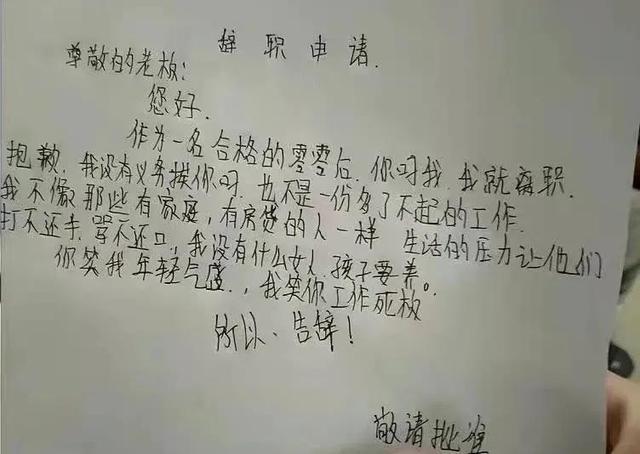 辞职申请.
尊敬的老板:
您好.
作为一名合格的零零后.你吗我.我就离职.
抱歉.我没有义务挨你吗.也不是一份多了不起的工作.
我不像那些有家庭,有房贷的人一样 生活的压力让他们
打不还手.骂不还口,我没有什么女人.孩子要养。
你笑我年轻气盛.,我笑你工作死板
所以、告辞!
敬请批准